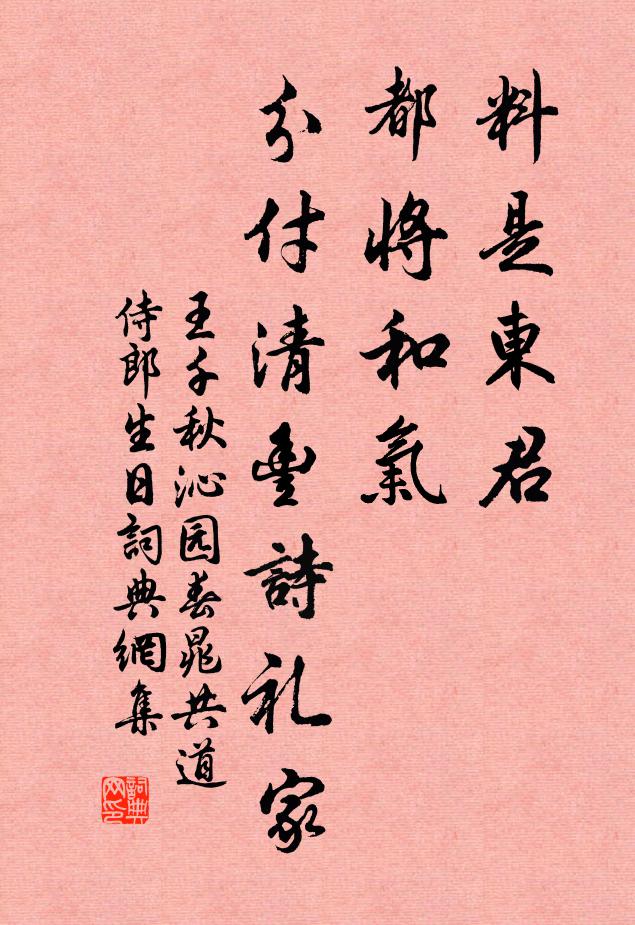 料是東君
都將和氣
分付清豊詩礼家
王千秋沁园春晁共道
侍郎生日詞典網集
詞典网印